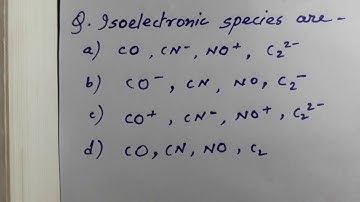 Q. Isoelectronic species are -
a) CO, CN⁻, NO⁺, C₂²⁻
b) CO⁻, CN, NO, C₂⁻
c) CO⁺, CN⁻, NO⁺, C₂²⁻
d) CO, CN, NO, C₂